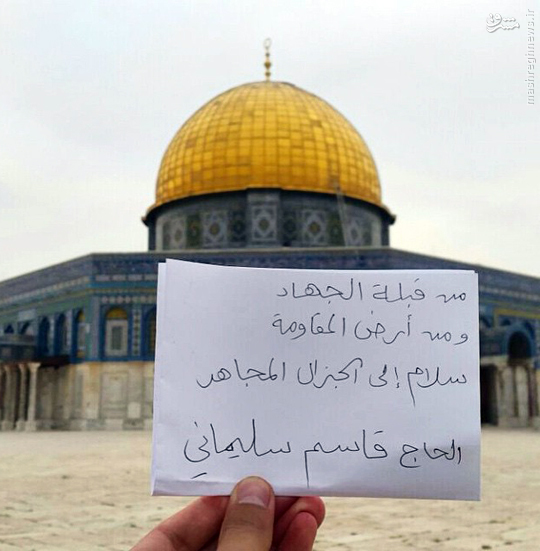 من قبلة الجهاد
ومن أرض المقاومة
سلام إلى الجنرال المجاهد
الحاج قاسم سليماني
مشرق
mashreghnews.ir